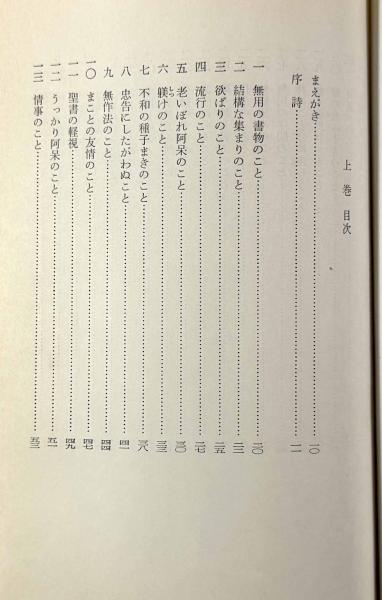 上巻 目次
まえがき……一〇
序詩……一一
一 無用の書物のこと……二〇
二 結構な集まりのこと……二三
三 欲ばりのこと……二五
四 流行のこと……二七
五 老いぼれ阿呆のこと……三〇
六 躾けのこと……三三
七 不和の種子まきのこと……三八
八 忠告にしたがわぬこと……四一
九 無作法のこと……四四
一〇 まことの友情のこと……四七
一一 聖書の軽視……四九
一二 うっかり阿呆のこと……五一
一三 情事のこと……五三